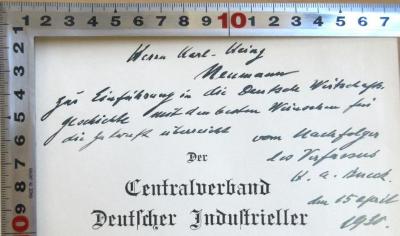 Herrn Karl-Heinz
Neumann
zur Einführung in die Deutsche Wirtschafts-
geschichte mit den besten Wünschen für
die Zukunft überreicht vom Nachfolger
des Verfassers
H. A. Bueck.
den 15 April
1930.
Der
Centralverband
Deutscher Industrieller